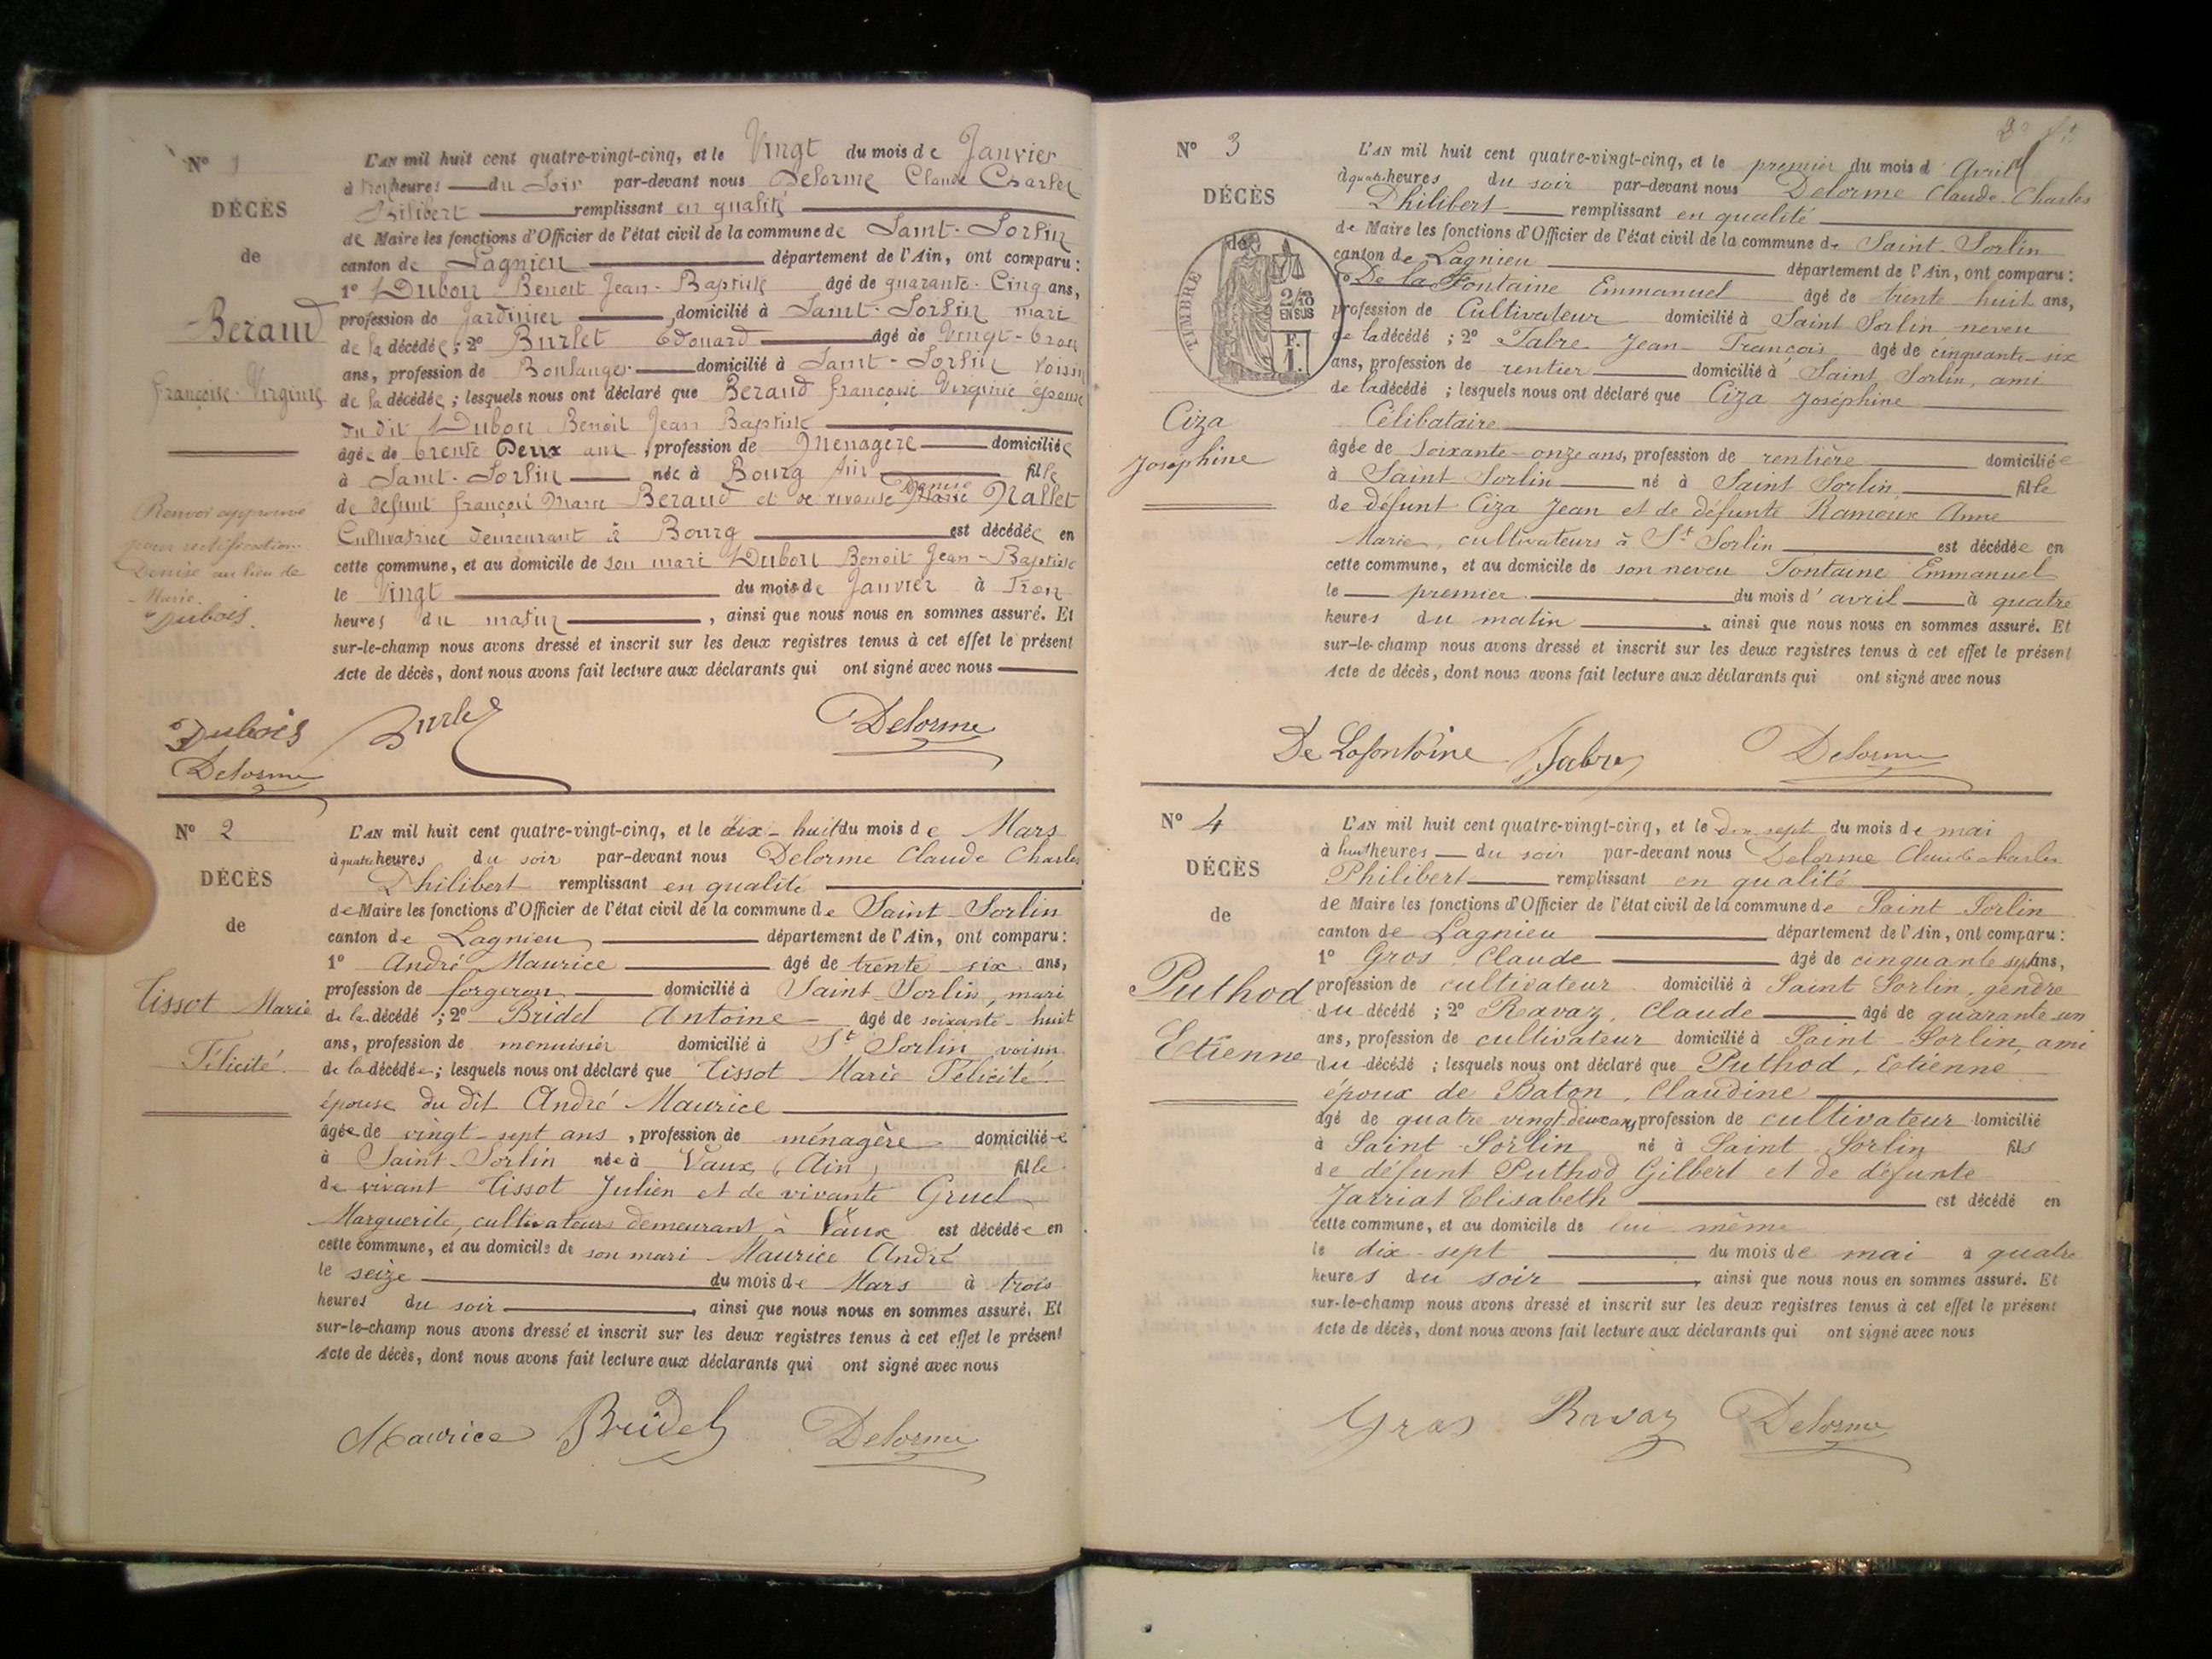 N° 1
DÉCÈS
de
Beraud
Françoise-Virginie
Renvoi approuvé
pour rectification
Denise au lieu de
Marie.
Dubois
L'AN mil huit cent quatre-vingt-cinq, et le Vingt du mois de Janvier
à trois heures du soir par-devant nous Delorme Claude Charles
Philibert remplissant en qualité
de Maire les fonctions d'Officier de l'état civil de la commune de Saint-Sorlin
canton de Lagnieu département de l'Ain, ont comparu :
1° Dubois Benoit Jean-Baptiste âgé de quarante-Cinq ans,
profession de Jardinier domicilié à Saint-Sorlin mari
de la décédée ; 2° Burlet Edouard âgé de Vingt-trois
ans, profession de Boulanger domicilié à Saint-Sorlin voisin
de la décédée ; lesquels nous ont déclaré que Beraud françoise Virginie épouse
du dit Dubois Benoit Jean Baptiste
âgée de trente Deux ans, profession de Menagère domiciliée
à Saint-Sorlin née à Bourg Ain fille
de defunt françois Marie Beraud et de vivante Denise Marie Nallet
Cultivatrice demeurant à Bourg est décédée en
cette commune, et au domicile de son mari Dubois Benoit Jean-Baptiste
le Vingt du mois de Janvier à Trois
heures du matin, ainsi que nous nous en sommes assuré. Et
sur-le-champ nous avons dressé et inscrit sur les deux registres tenus à cet effet le présent
Acte de décès, dont nous avons fait lecture aux déclarants qui ont signé avec nous
Dubois Burlet Delorme
Delorme
N° 2
DÉCÈS
de
Tissot Marie
Félicité.
L'AN mil huit cent quatre-vingt-cinq, et le dix-huit du mois de Mars
à quatre heures du soir par-devant nous Delorme Claude Charles
Philibert remplissant en qualité
de Maire les fonctions d'Officier de l'état civil de la commune de Saint-Sorlin
canton de Lagnieu département de l'Ain, ont comparu :
1° André Maurice âgé de trente-six ans,
profession de forgeron domicilié à Saint-Sorlin, mari
de la décédé ; 2° Bridel Antoine âgé de soixante-huit
ans, profession de menuisier domicilié à St Sorlin voisin
de la décédée ; lesquels nous ont déclaré que Tissot Marie Félicité
épouse du dit André Maurice
âgée de vingt-sept ans, profession de ménagère domiciliée
à Saint-Sorlin née à Vaux (Ain) fille
de vivant Tissot Julien et de vivante Gruel
Marguerite, cultivateurs demeurant à Vaux est décédée en
cette commune, et au domicile de son mari Maurice André
le seize du mois de Mars à trois
heures du soir, ainsi que nous nous en sommes assuré. Et
sur-le-champ nous avons dressé et inscrit sur les deux registres tenus à cet effet le présent
Acte de décès, dont nous avons fait lecture aux déclarants qui ont signé avec nous
Maurice Bridel Delorme
N° 3
DÉCÈS
de
TIMBRE
2/10
EN SUS
F.
1.
Ciza
Joséphine
L'AN mil huit cent quatre-vingt-cinq, et le premier du mois d'Avril
à quatre heures du soir par-devant nous Delorme Claude-Charles
Philibert remplissant en qualité
de Maire les fonctions d'Officier de l'état civil de la commune de Saint-Sorlin
canton de Lagnieu département de l'Ain, ont comparu :
1° De la Fontaine Emmanuel âgé de trente huit ans,
profession de Cultivateur domicilié à Saint Sorlin neveu
de la décédé ; 2° Fabre Jean François âgé de cinquante-six
ans, profession de rentier domicilié à Saint Sorlin, ami
de la décédé ; lesquels nous ont déclaré que Ciza Joséphine
Célibataire
âgée de soixante-onze ans, profession de rentière domiciliée
à Saint Sorlin né à Saint Sorlin fille
de défunt Ciza Jean et de défunte Rameux Anne
Marie, cultivateurs à St Sorlin est décédée en
cette commune, et au domicile de son neveu Fontaine Emmanuel
le premier du mois d'avril à quatre
heures du matin, ainsi que nous nous en sommes assuré. Et
sur-le-champ nous avons dressé et inscrit sur les deux registres tenus à cet effet le présent
Acte de décès, dont nous avons fait lecture aux déclarants qui ont signé avec nous
De Lafontaine Fabre Delorme
N° 4
DÉCÈS
de
Puthod
Etienne
L'AN mil huit cent quatre-vingt-cinq, et le dix sept du mois de mai
à huit heures du soir par-devant nous Delorme Claude charles
Philibert remplissant en qualité
de Maire les fonctions d'Officier de l'état civil de la commune de Saint-Sorlin
canton de Lagnieu département de l'Ain, ont comparu :
1° Gros Claude âgé de cinquante sept ans,
profession de cultivateur domicilié à Saint Sorlin, gendre
du décédé ; 2° Ravaz, Claude âgé de quarante-un
ans, profession de cultivateur domicilié à Saint-Sorlin, ami
du décédé ; lesquels nous ont déclaré que Puthod, Etienne
époux de Baton, Claudine
âgé de quatre vingt deux ans, profession de cultivateur domicilié
à Saint-Sorlin né à Saint Sorlin fils
de défunt Puthod Gilbert et de défunte
Jarriat Elisabeth est décédé en
cette commune, et au domicile de lui même
le dix-sept du mois de mai à quatre
heures du soir, ainsi que nous nous en sommes assuré. Et
sur-le-champ nous avons dressé et inscrit sur les deux registres tenus à cet effet le présent
Acte de décès, dont nous avons fait lecture aux déclarants qui ont signé avec nous
Gros Ravaz Delorme